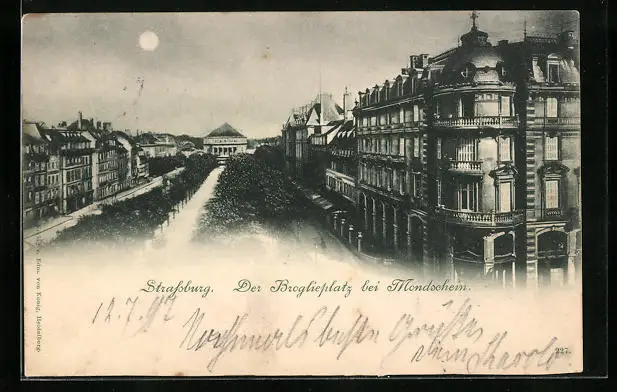 Straßburg. Der Broglieplatz bei Mondschein.
12.7.97 Nochmals besten Grüße
dein
227.
Edm. von König, Heidelberg.